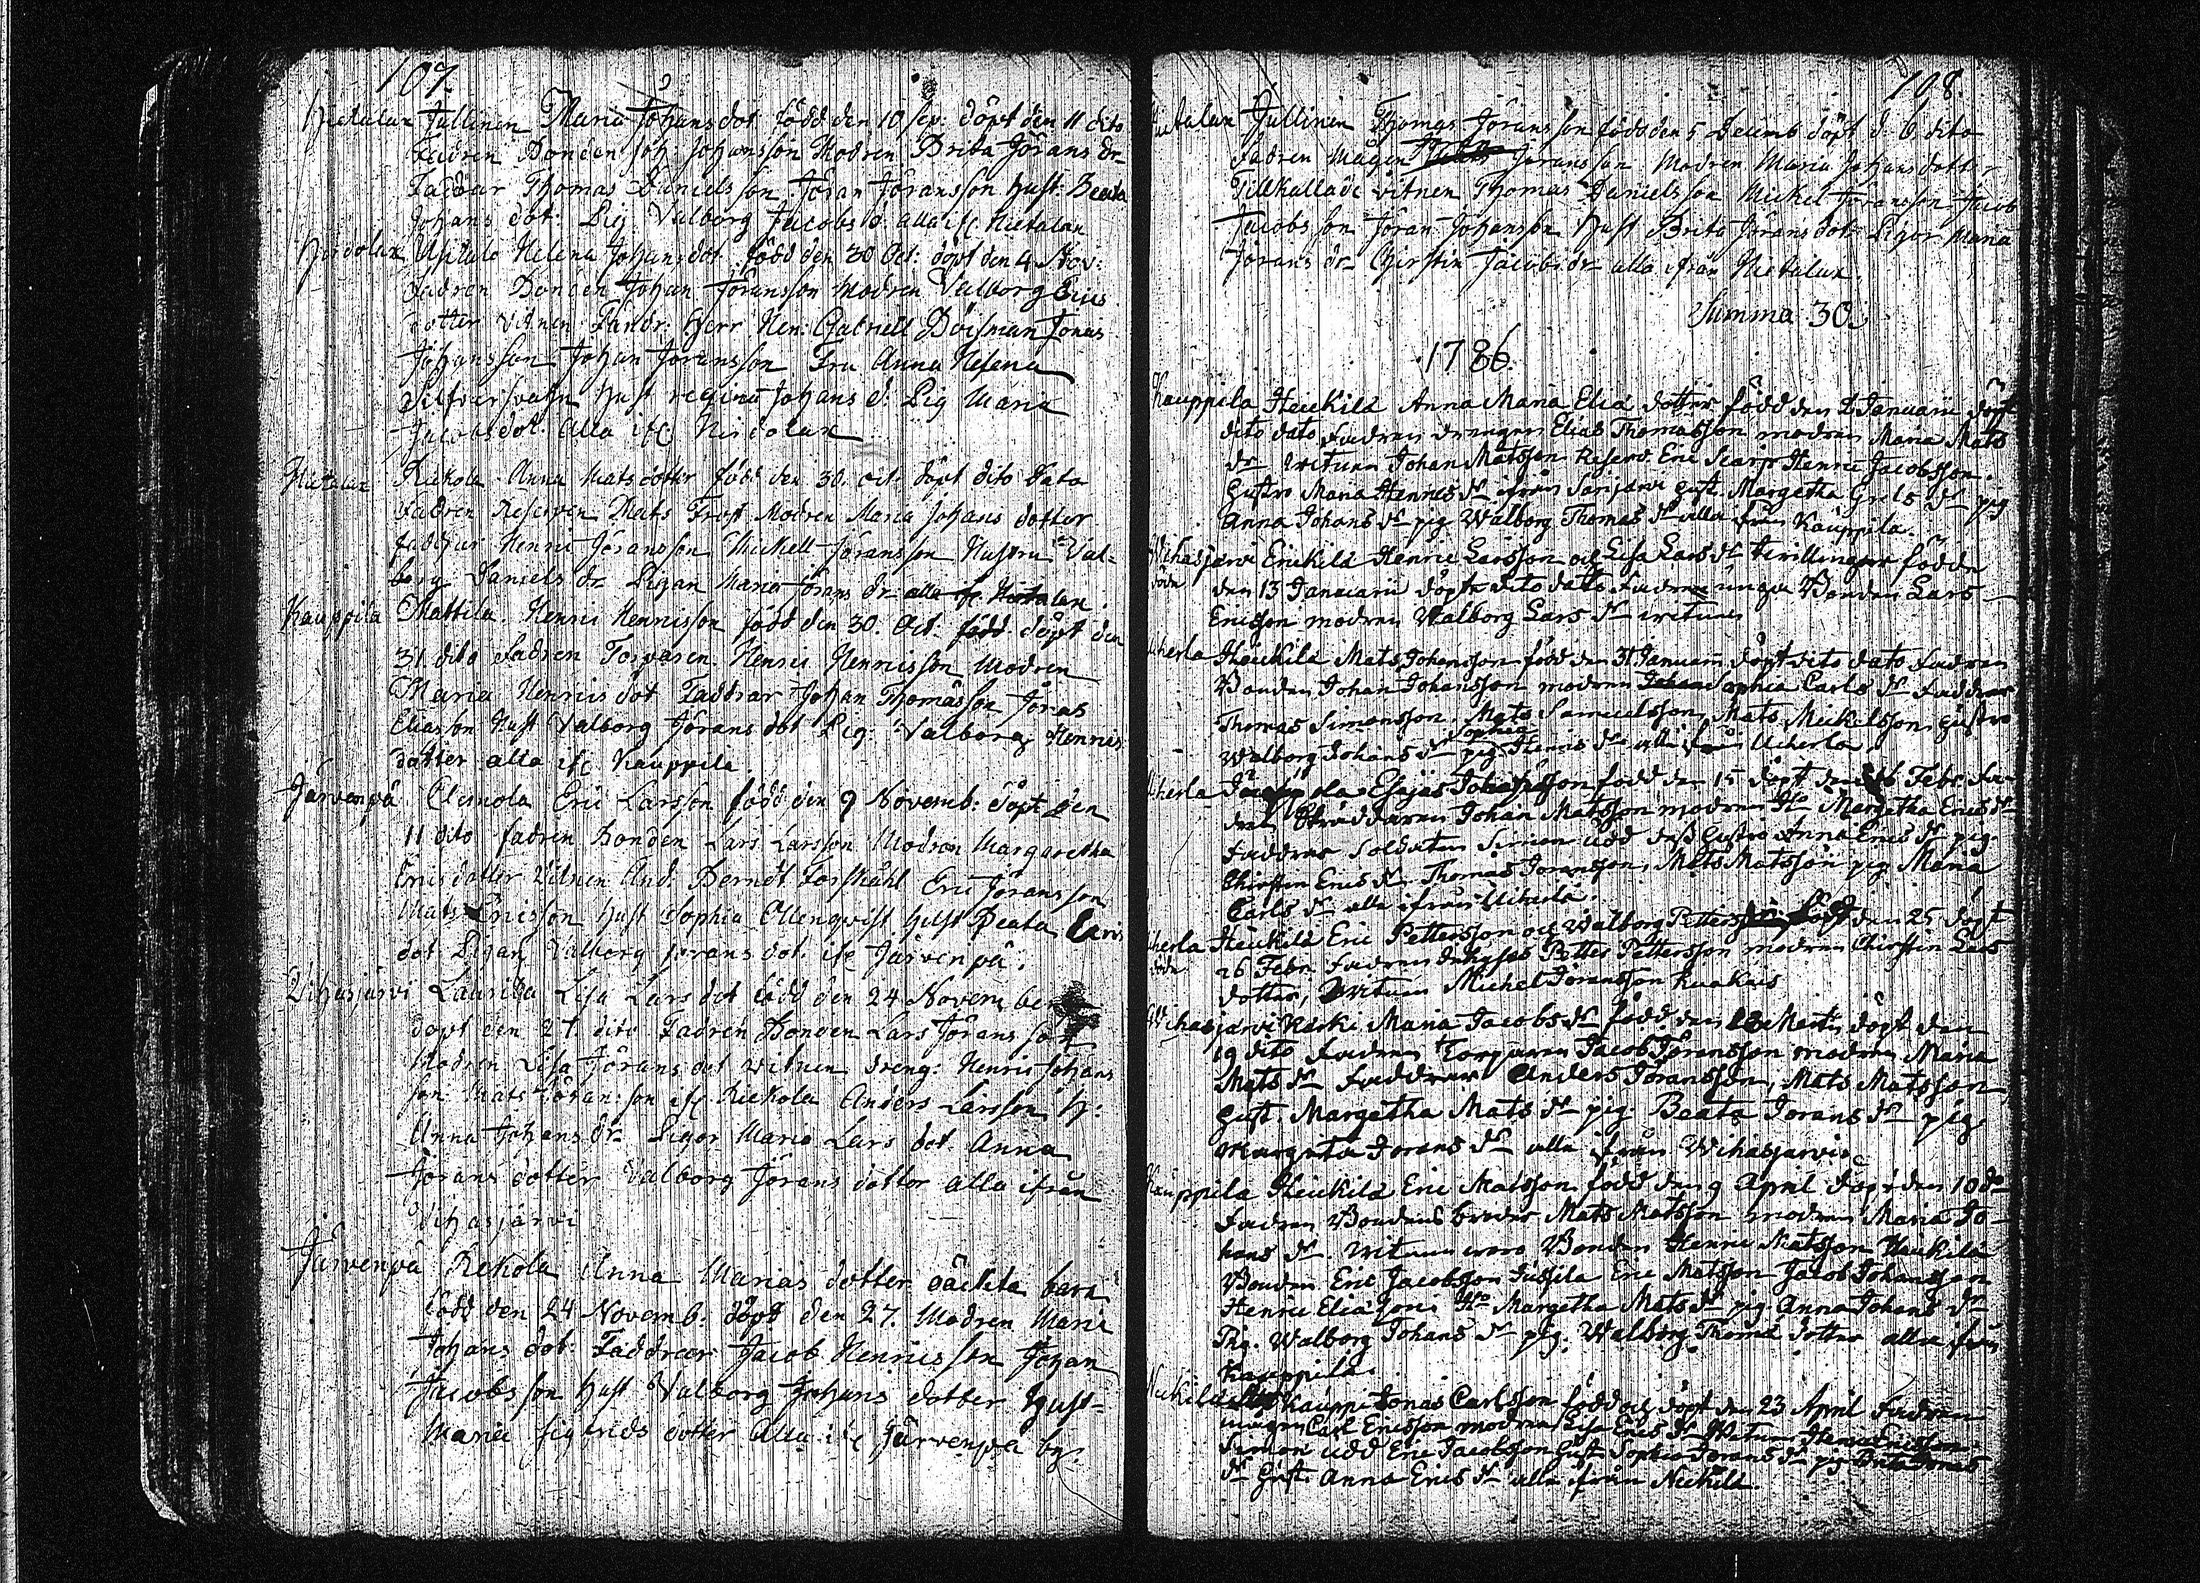 107.
Hietalax Jullinen Maria Johansdot. född den 10 Sep: döpt den 11 dito
Fadren Bonden Joh: Johansson Modren Brita Jörans dr
Faddar Thomas Daniels son Jöran Jöransson Hust: Beata
Johans dot: Pig Valborg Jacobs d. alla if: Hietalax
Uptalo Helena Johansdot. född den 30 Oct: döpt den 4 Nov:
Fadren Bonden Johan Jöransson Modren Valborg Erics
dotter vitnen Herr Hen: Gabriell Jonas
Johansson Johan Joransson Fru Anna Helena
Hust regina Johans d. Pig Maria
Jacobsdot. alla if:
Hietalax Riekola Anna Mats dotter född den 30. oct. döpt dito dato
Fadren Reserven Mats Frost Modren Maria Johans dotter
faddrar Henric Joransson Mickell Joransson Hustru Val-
borg Daniels dr. Pigan Maria Jorans dr alla if: Hietalax.
Kauppila Mattila. Henric Hennisson född den 30. Oct. född. döpt den
31. dito Fadren Torparen Henric Hennisson Modren
Maria Henriis dot Faddrar Johan Thomasson Jöras
Eliasson Hust Valborg Jörans dot Pig: Valborg Hennis
dotter alla if: Kauppila
Järvenpä Eric Larsson född den 9 Novemb: döpt den
11 dito fadren Bonden Lars Larsson Modren Margaretha
Erics dotter Vitnen And: Berndt Eric Jöransson
Mats Ericsson Hust Sophia Ollenqvist Hust Beata Lars
dot Pigan Valborg Jorans dot. if: Järvenpä.
Vihasjärvi Laurila Lisa Lars dot född den 24 November
döpt den 27. dito Fadren Bonden Lars Jörans son
Modren Lisa Jörans dot vitnen dreng: Henric Johans
son Mats Jöran: son if: Riekola Anders Larsson H:
Anna Johans dr. Pigor Maria Lars dot Anna
Jörans dotter Valborg Jörans dotter alla ifrån
Vihasjärvi
Järvenpä Rekola Anna Marias dotter oäckta barn
född den 24 Novemb: döpt den 27. Modren Maria
Johans dot: Faddrar Jacob Henrics son Johan
Jacobs son Hust Valborg Johans dotter Hust-
Maria Sigfrids dotter alla if: Järvenpä by.
108.
Hietalax Jullinen Thomas Jörans son född den 5 Decemb döpt d. 6 dito
Fadren Mågen Joransson Modren Maria Johans dotter
Tillkallade vitnen Thomas Danielsson Mickel Joransson Jacob
Jacobs son Jöran Johansson Hust Brita Jörans dot: Pigor Maria
Jörans dr Chirstin Jacobs dr alla ifrån Hietalax.
Summa 30.
1786.
Kauppila Heickilä Anna Maria Elia dotter född den 2 Januarii döpt
dito dato Fadren drengen Elias Thomasson modren Maria Mats
dr witnen Johan Matsson Reserv. Eric Scarp Henric Jacobsson.
Hustro Maria Henrics dr ifrån Sarjärvi Hust. Margetha Grels dr pig
Anna Johans dr pig Walborg Thomas dr alla från Kauppila.
Wihasjärvi Erickilä Henric Larsson och Lisa Lars dr twillingar födde
döde den 13 Januarii döpte dito dato Fadren unga Bonden Lars
Ericsson modren Walborg Lars dr witnen
Uckerla Heickilä Mats Johansson född den 31 Januarii döpt dito dato Fadren
Bonden Johan Johansson modren Sophia Carls dr Faddrar
Thomas Simonsson. Mats Samuelsson, Mats Mickelsson Hustro
Walborg Johans dr pig Sophia Henrics dr alla från Uckerla.
Uckerla Esajas Johansson född den 15 döpt den 16 Febr. Fa-
dren Skräddaren Johan Matsson modren Ho Margetha Erics dr
Faddrar Soldaten Simon Udd dess Hustro Anna Erics dr pig
Chirstin Erics dr Thomas Joransson, Mats Matsson pig Maria
Carls dr alla ifrån Uckerla.
Uckerla Heickilä Eric Pettersson och Walborg Petters född den 25 döpt
döde 26 Febr. Fadren Petter Pettersson modren Chirstin Lars
dotter, Witnen Michel Joransson
Wihasjärvi Kärki Maria Jacobs dr född den 18 Martii döpt den
19 dito Fadren Torparen Jacob Joransson modren Maria
Mats dr Faddrar Anders Joransson, Mats Matsson
Hust. Margetha Mats dr pig Beata Jorans dr pig
Margeta Jorans dr alla från Wihasjärvi.
Kauppila Heickilä Eric Matsson född den 9 April döpt den 10 do
Fadren Bondens broder Mats Matsson modren Maria Jo-
hans dr. Witnen woro Bonden Henric Matsson Heickilä
Bonden Eric Jacobsson Jussila Eric Matsson Jacob Johansson
Henric Eliasson Ho Margetha Mats dr pig Anna Johans dr
Pig. Walborg Johans dr pig. Walborg Thomæ dotter alla från
Kauppila.
Nickilä Kauppi Jonas Carlsson född och döpt den 23 April Fadren
mågen Carl Ericsson modren Lisa Erics dr Witnen Henric Ericsson
Simon Udd Eric Jacobsson Hust Sophia Jorans dr pig Brita Jonas
dr Hust. Anna Erics dr alla från Nickilä.